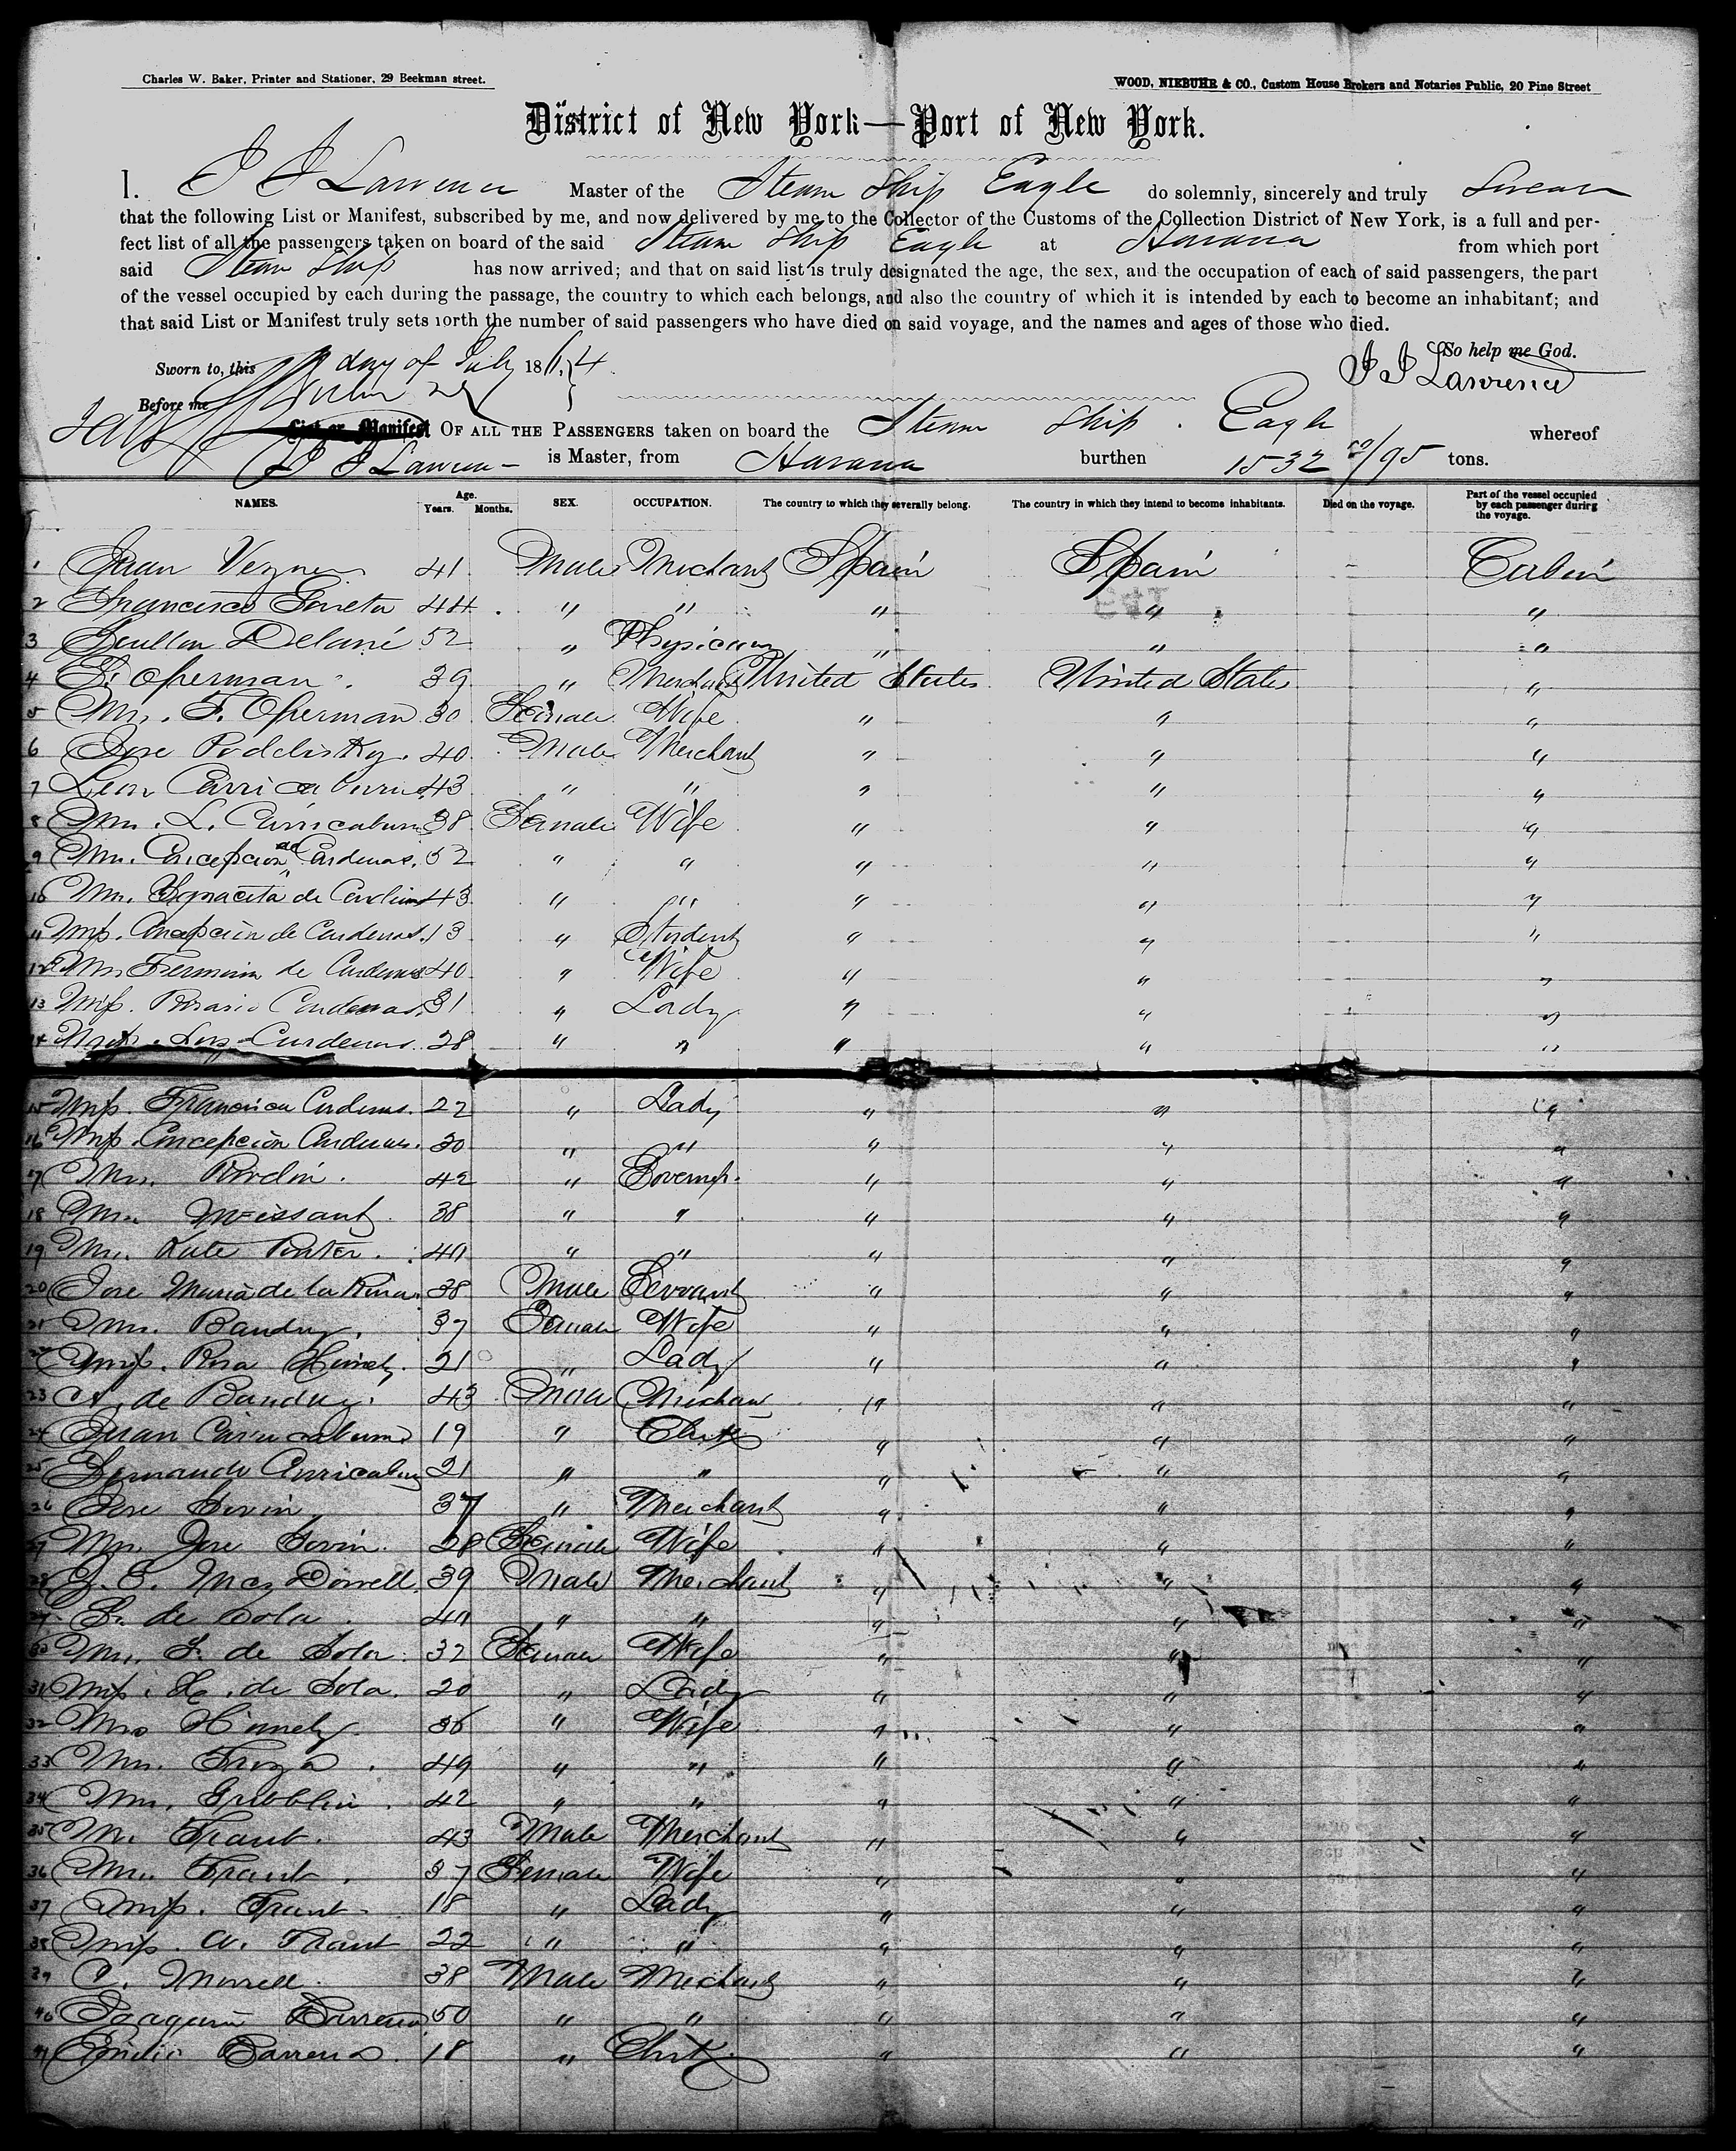 Charles W. Baker, Printer and Stationer, 29 Beekman street.
WOOD, NIEBUHR & CO., Custom House Brokers and Notaries Public, 20 Pine Street
District of New York—Port of New York.
I. J J Lawrence Master of the Steam Ship Eagle do solemnly, sincerely and truly Swear
that the following List or Manifest, subscribed by me, and now delivered by me to the Collector of the Customs of the Collection District of New York, is a full and per-
fect list of all the passengers taken on board of the said Steam Ship Eagle at Havana from which port
said Steam Ship has now arrived; and that on said list is truly designated the age, the sex, and the occupation of each of said passengers, the part
of the vessel occupied by each during the passage, the country to which each belongs, and also the country of which it is intended by each to become an inhabitant; and
that said List or Manifest truly sets forth the number of said passengers who have died on said voyage, and the names and ages of those who died.
So help me God.
Sworn to, this day of July 18
J J Lawrence
Before me
List or Manifest OF ALL THE PASSENGERS taken on board the Steam Ship Eagle whereof
J J Lawren is Master, from Havana burthen 1532 /95 tons.
NAMES. Age. Years. Months. SEX. OCCUPATION. The country to which they severally belong. The country in which they intend to become inhabitants. Died on the voyage. Part of the vessel occupied by each passenger during the voyage.
1 Juan 41 Male Merchant Spain Spain Cabin
2 Francisco 44 " " " " "
3 52 " Physician " " "
4 F. Operman 39 " Merchant United States United States "
5 Mrs. F. Operman 30 Female Wife " " "
6 Jose 40 Male Merchant " " "
7 Leon Carricaburu 43 " " " " "
8 Mrs. L. Carricaburu 38 Female Wife " " "
9 Mrs. Concepcion de Cardenas. 52 " " " " "
10 Mrs. Ygnacita de 43 " " " " "
11 Miss. Concepcion de Cardenas. 13 " Student " " "
12 Mrs de Cardenas 40 " Wife " " "
13 Miss. Rosario Cardenas. 31 " Lady " " "
14 Luz Cardenas. 28 " " " " "
15 Miss. Francisca Cardenas. 22 " Lady " " "
16 Miss. Concepcion Cardenas. 30 " " " " "
17 Mrs. 42 " Governess. " " "
18 Mrs. 38 " " " " "
19 Mrs. Kate 40 " " " " "
20 Jose Maria de la 38 Male Servant " " "
21 Mrs. Banduy. 37 Female Wife " " "
22 Miss. Rosa Himely. 21 " Lady " " "
23 A. de Banduy. 43 Male Merchant " " "
24 Juan Carricaburu 19 " Clerk " " "
25 Fernando Carricaburu 21 " " " " "
26 Jose Govin 37 " Merchant " " "
27 Mrs. Jose Govin. 28 Female Wife " " "
28 39 Male Merchant " " "
29 F. de Sola. 40 " " " " "
30 Mrs. F. de Sola. 32 Female Wife " " "
31 Miss. H. de Sola. 20 " Lady " " "
32 Mrs Himely. 36 " Wife " " "
33 Mrs. 49 " " " " "
34 Mrs. Gribblin. 42 " " " " "
35 M. 43 Male Merchant " " "
36 Mrs. 37 Female Wife " " "
37 Miss. 18 " Lady " " "
38 Miss. A. 22 " " " " "
39 C. Morrell. 38 Male Merchant " " "
40 Joaquin Barrena 50 " " " " "
41 Emilio Barrena. 18 " Clerk " " "